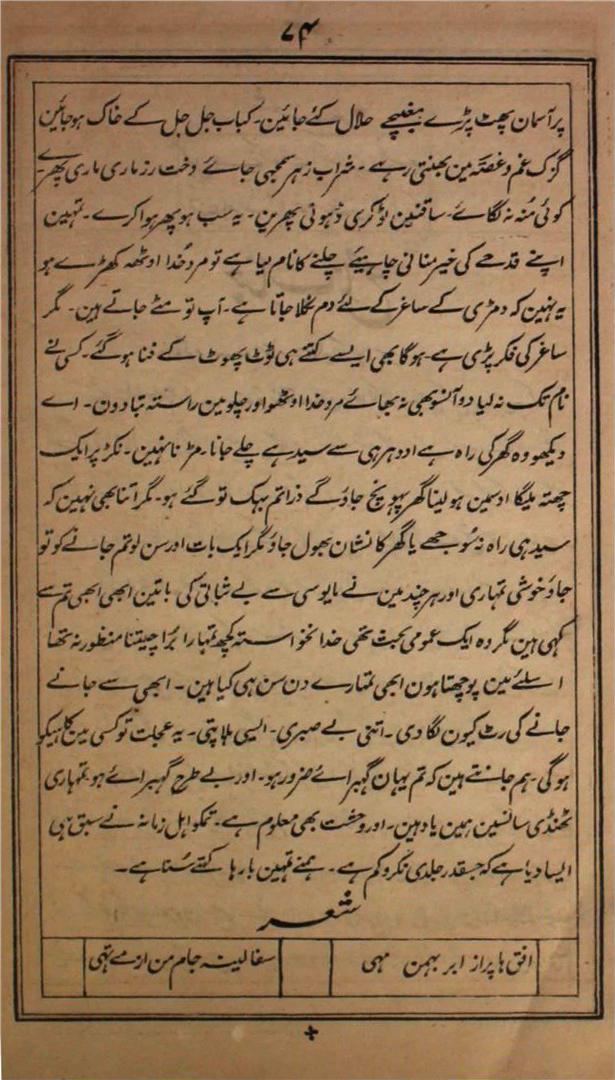 ۷۴
پر آسمان پھٹ پڑے مغبچے حلال کئے جائین۔ کباب جل جل کے خاک ہو جائین
گزک غم و غصّہ مین بھنتی رہے۔ شراب زہر سمجھی جائے دخت رز ماری ماری پھرے۔
کوئی مُنہ نہ لگائے۔ ساقنین ٹوکری ڈہوتی پھرین۔ یہ سب ہو پھر ہوا کرے۔ تمہین
اپنے قدحے کی خیر منانی چاہیئے چلنے کا نام لیا ہے تو مرد خُدا اوٹھہ کھڑے ہو
یہ نہین کہ دمڑی کے ساغر کے لئے دم نکلا جاتا ہے۔ آپ تو مٹے جاتے ہین۔ مگر
ساغر کی فکر پڑی ہے۔ ہوگا بھی ایسے کتنے ہی ٹوٹ پھوٹ کے فنا ہو گئے۔ کسی نے
نام تک نہ لیا دو آنسو بھی نہ بھائے مرد خدا اوٹھو اور چلو مین راستہ بتا دون۔ اے
دیکھو وہ گھر کی راہ ہے اودہر ہی سے سیدہے چلے جانا۔ مڑنا نہین۔ نکڑ پر ایک
چھتہ ملیگا اوسمین ہو لینا گھر پہونچ جاؤ گے ذرا تم بہک تو گئے ہو۔ مگر اتنا بھی نہین کہ
سیدہی راہ نہ سُوجھے یا گھر کا نشان بھول جاؤ مگر ایک بات اور سن لو تم جانے کو تو
جاؤ خوشی تمہاری اور ہر چند مین نے مایوسی سے بے ثباتی کی باتین ابھی ابھی تم سے
کہی ہین مگر وہ ایک عمومی بحث تھی خدا نخواستہ کچھ تمہارا بُرا چیتنا منظور نہ تھا
اسلئے مین پوچھتا ہون ابھی تمہارے دن سن ہی کیا ہین۔ ابھی سے جانے
جانے کی رٹ کیون لگا دی۔ اتنی بے صبری۔ ایسی ملاہتی۔ یہ عجلت تو کسی مین کاہیکو
ہوگی۔ ہم جانتے ہین کہ تم یہان گھبرائے ضرور ہو۔ اور بے طرح گھبرائے ہو۔ تمہاری
ٹھنڈی سانسین ہمین یاد ہین۔ اور وحشت بھی معلوم ہے۔ تمکو اہل زمانہ نے سبق ہی
ایسا دیا ہے کہ جسقدر جلدی نکرو کم ہے۔ ہمنے تمہین بارہا کہتے سُنا ہے۔
شعر
افق ہا پر از ابر بہمن مہی
سفالینہ جام من از مے تہی